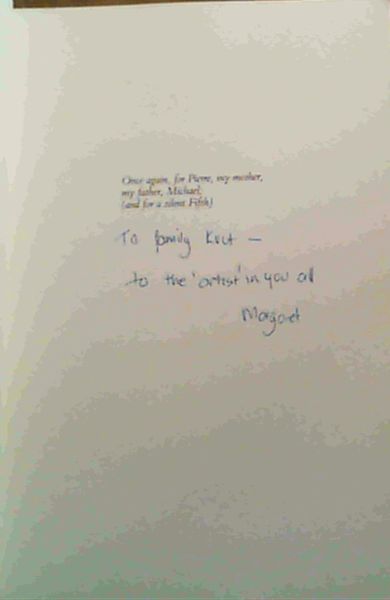 Once again, for Pierre, my mother,
my father, Michael,
(and for a silent Fifth)
To family Kuit —
to the 'artist' in you all
Margaret